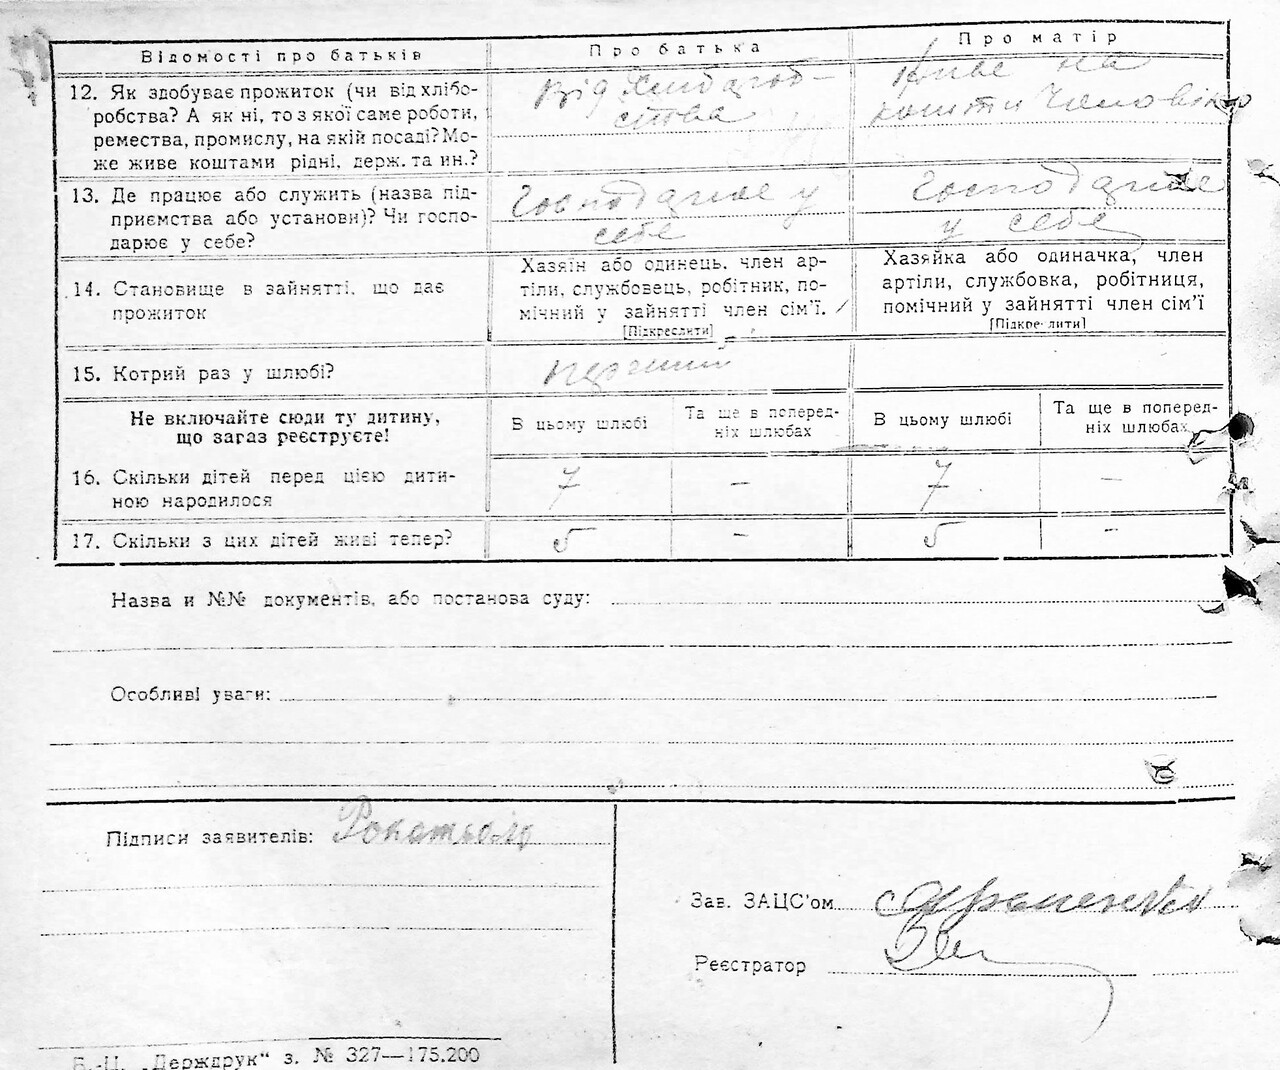 Відомості про батьків
Про батька
Про матір
12. Як здобуває прожиток (чи від хлібо-
робства? А як ні, то з якої саме роботи,
ремества, промислу, на якій посаді? Мо-
же живе коштами рідні, держ. та ин.?
від
ства
живе на
кошти чоловіка
13. Де працює або служить (назва під-
приємства або установи)? Чи госпо-
дарює у себе?
Господарює у
себе
Господарює
у себе
14. Становище в зайнятті, що дає
прожиток
Хазяїн або одинець, член ар-
тіли, службовець, робітник, по-
мічний у зайнятті член сім'ї.
[Підкреслити]
Хазяйка або одиначка, член
артіли, службовка, робітниця,
помічний у зайнятті член сім'ї
[Підкреслити]
15. Котрий раз у шлюбі?
перший
Не включайте сюди ту дитину,
що зараз реєструєте!
В цьому шлюбі
Та ще в поперед-
ніх шлюбах
В цьому шлюбі
Та ще в поперед-
ніх шлюбах
16. Скільки дітей перед цією дити-
ною народилося
7
—
7
—
17. Скільки з цих дітей живі тепер?
5
—
5
—
Назва и №№ документів, або постанова суду:
Особливі уваги:
Підписи заявителів:
Зав. ЗАЦС'ом
Реєстратор
Б.-Ц. „Держдрук“ з. № 327—175.200